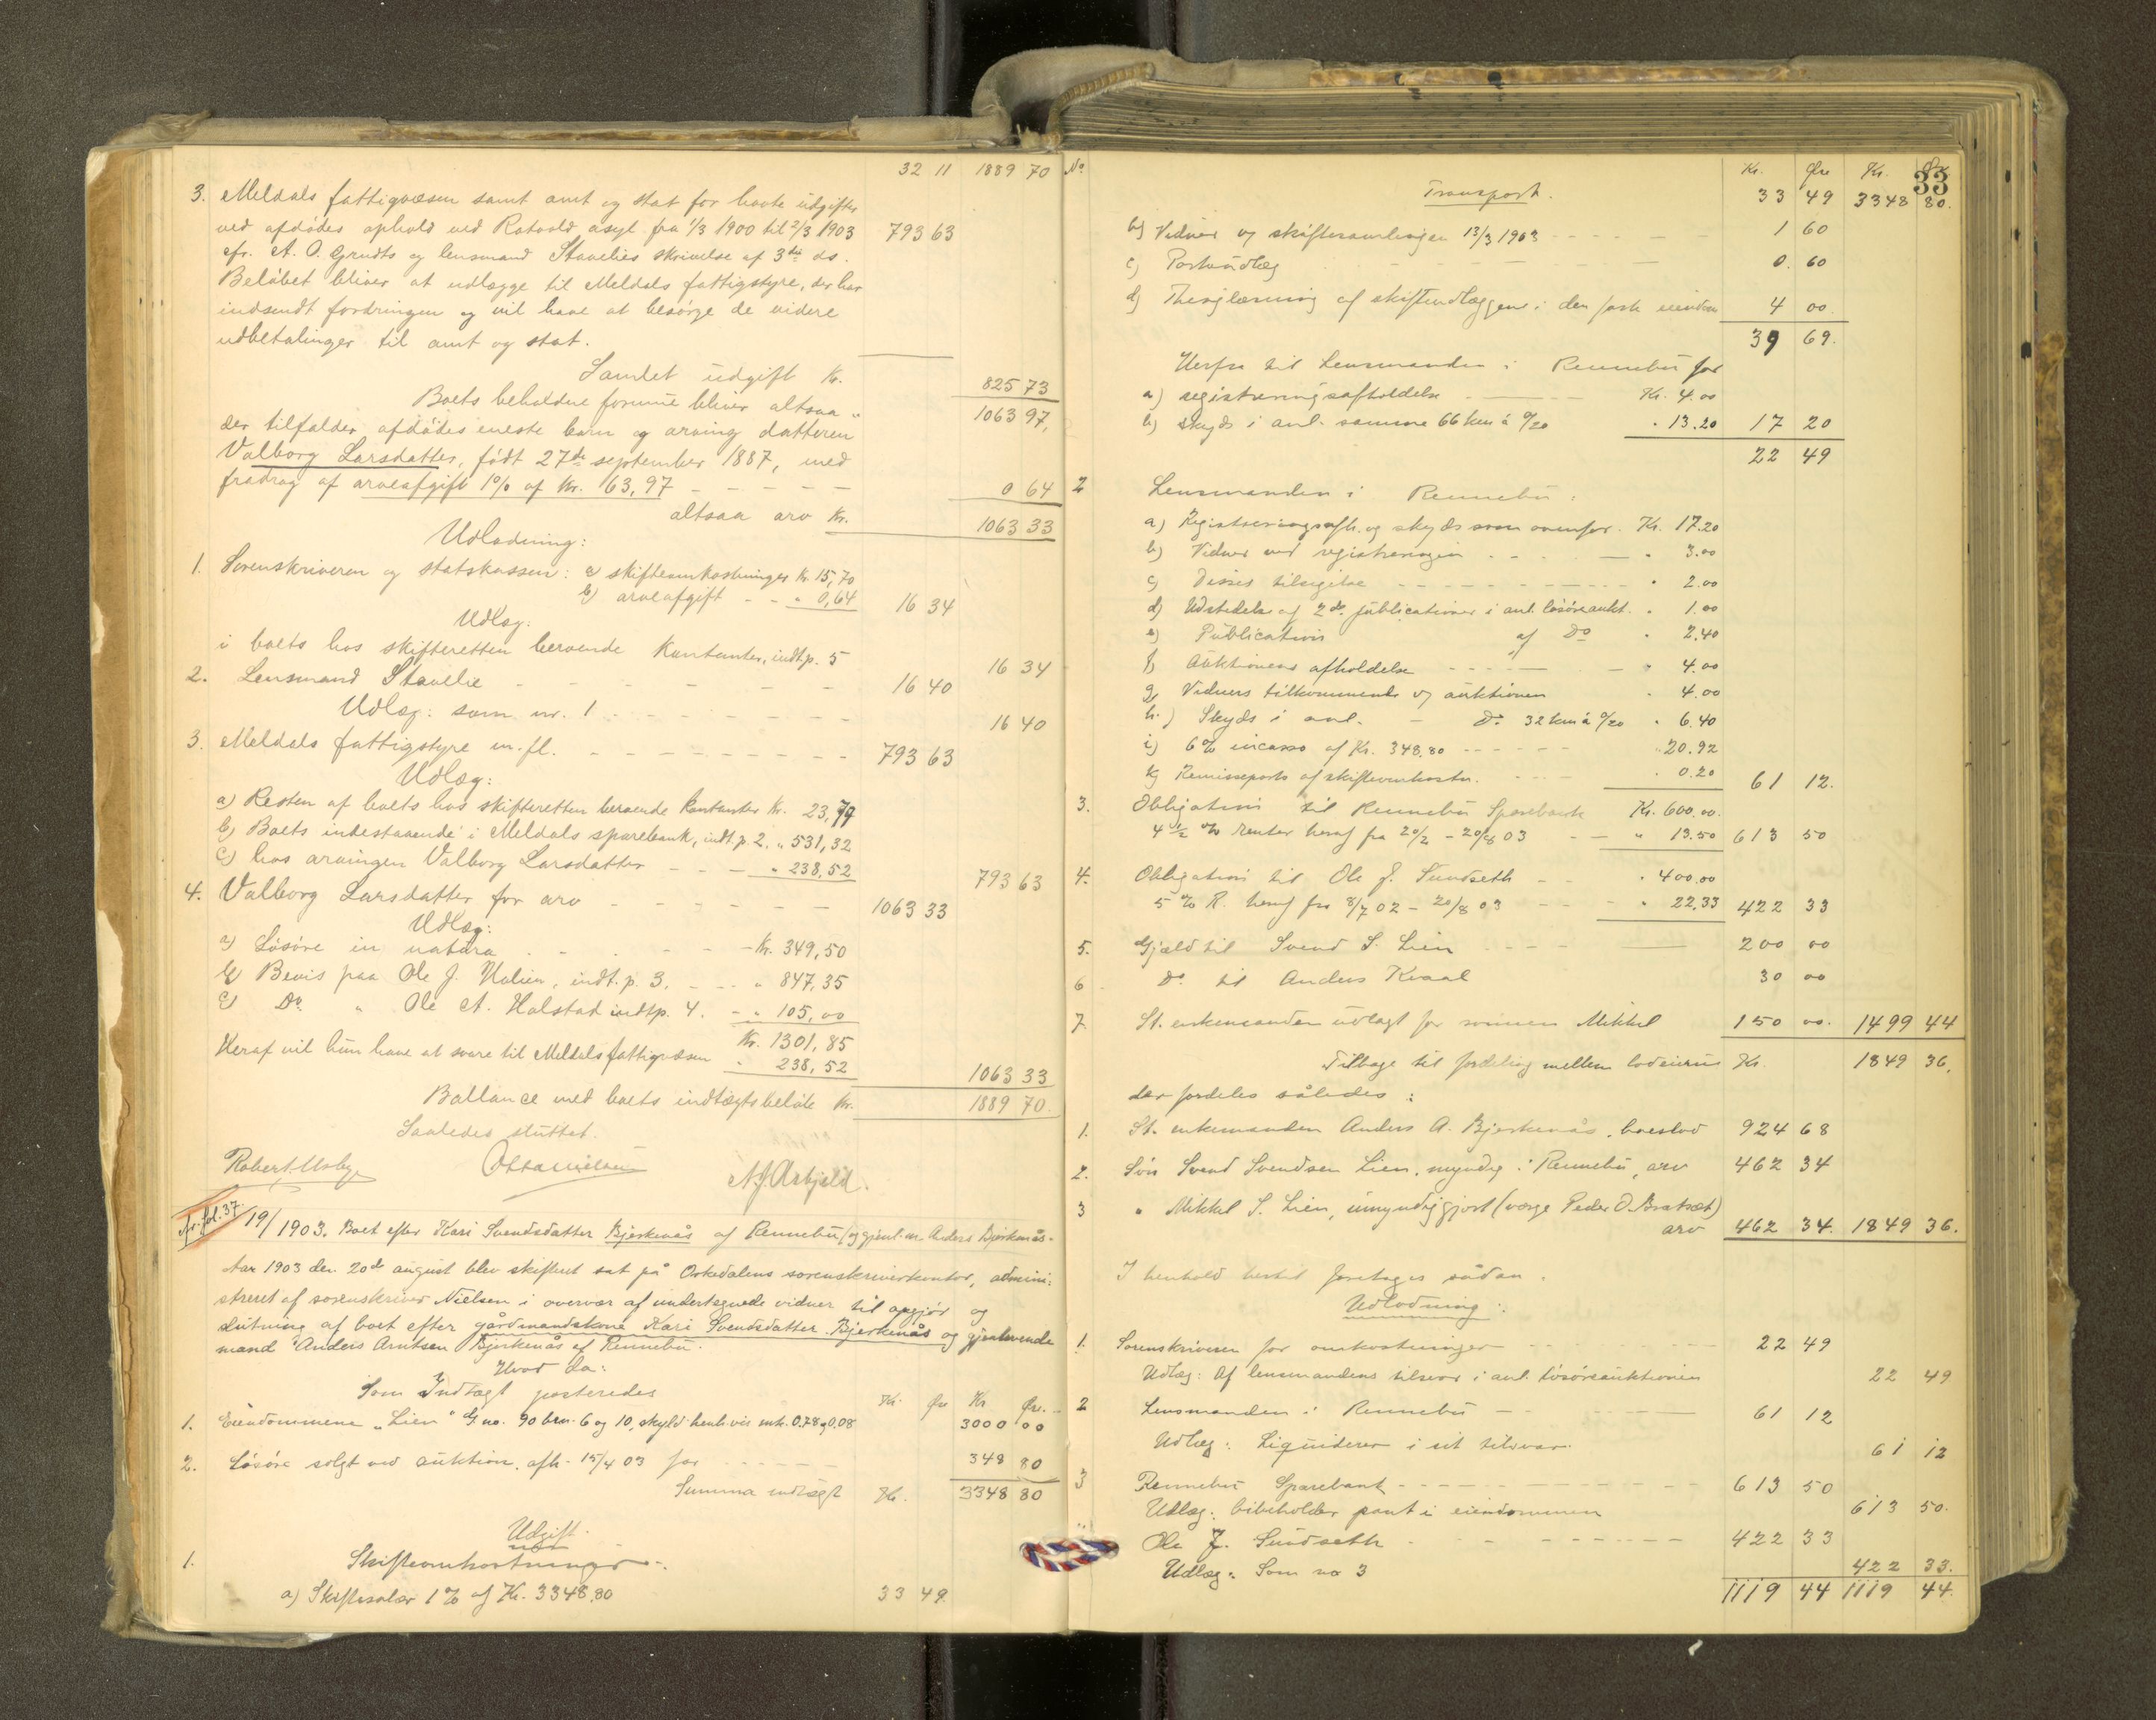 32 11 1889 70
3. Meldals fattigvæsen samt amt og stat for havte udgifter
ved afdødes ophold ved Rotvold asyl fra 1/3 1900 til 2/3 1903 793 63
cfr. A. O. Grudts og lensmand Stavelies skrivelse af 3die ds.
Beløbet bliver at udlægge til Meldals fattigstyre, der har
indsendt fordringen og vil have at besørge de videre
udbetalinger til amt og stat.
Samlet udgift Kr. 825 73
Boets beholdne formue bliver altsaa " 1063 97,
der tilfalder afdødes eneste barn og arving datteren
Valborg Larsdatter, født 27de september 1887, med
fradrag af arveafgift 1% af Kr. 63,97 - - - - - 0 64
altsaa arv Kr. 1063 33
Udlodning:
1. Sorenskriveren og statskassen: a) skifteomkostninger Kr. 15,70
b) arveafgift - - " 0,64 16 34
Udlæg:
i boets hos skifteretten beroende Kontanter, indt.p. 5 16 34
2. Lensmand Stavelie - - - - - - 16 40
Udlæg: som nr. 1 - - - - - - 16 40
3. Meldals fattigstyre m.fl. - - - - - - - - 793 63
Udlæg:
a) Resten af boets hos skifteretten beroende kontanter Kr. 23,79
b) Boets indestaaende i Meldals sparebank, indt.p. 2. " 531,32
c) hos arvingen Valborg Larsdatter - - - " 238,52 793 63
4. Valborg Larsdatter for arv - - - - - - 1063 33
Udlæg:
a) Løsøre in natura - - - - - Kr. 349,50
b) Bevis paa Ole J. Holien, indt.p. 3. - - - " 847,35
c) Do. " Ole A. Halstad indtp. 4. - " 105,00
Kr. 1301,85
Heraf vil hun have at svare til Meldals fattigvæsen " 238,52 1063 33
Ballance med boets indtægtsbeløb Kr. 1889 70.
Saaledes sluttet.
Robert Uslye Otto Nielsen N J Asbjeld.
cfr. fol. 37.
19/1903. Boet efter Kari Svendsdatter Bjerkenås af Rennebu (og gjenl. m. Anders Bjerkenås.
Aar 1903 den 20de august blev skifteret sat på Orkedalens sorenskriverkontor, admini-
streret af sorenskriver Nielsen i overvær af undertegnede vidner til opgjør og
slutning af boet efter gårdmandskone Kari Svendsdatter Bjerkenås og gjenlevende
mand Anders Arntsen Bjerkenås af Rennebu.
Hvor da:
Som Indtægt posteredes Kr. Øre Kr. Øre.
1. Eiendommene "Lien" G.no. 90 brn. 6 og 10, skyld henh.vis mk. 0.78 og 0.08 3000 00
2. Løsøre solgt ved auktion, afh. 15/4 03 for - - - - - 348 80
Summa indtægt Kr. 3348 80
Udgift
1. Skifteomkostninger:
a) Skiftesalær 1% af Kr. 3348,80 33 49
No Kr. Øre Kr. Øre
33
Transport. 33 49 3348 80.
b) Vidner og skiftesamlingen 13/3 1903 - - - - - 1 60
c) Portoudlæg - - - - 0. 60
d) Thinglæsning af skifteudlæggene i den faste eiendom 4 00.
39 69.
Herfra til Lensmanden i Rennebu for
a) registreringsafholdelse - - - Kr. 4.00
b) skyds i anl. samme 66 km á 0/20 " 13.20 17 20
22 49
2 Lensmanden i Rennebu:
a) Registreringsafh. og skyds som ovenfor. Kr. 17.20
b) Vidner ved registreringen - - - " 3.00
c) Disses tilsigelse - - - - - - - " 2.00
d) Udstedelse af 2de publicationer i anl. løsøreaukt. " 1.00
e) Publication af Do " 2.40
f) Auktionens afholdelse - - - - " 4.00
g) Vidners tilkommende v/ auktionen " 4.00
h.) Skyds i anl. - Do. 32 km á 0/20 " 6.40
i) 6% incasso af Kr. 348.80 - - - - - " 20.92
k) Remisseporto af skifteomkostn. - - - " 0.20 61 12.
3. Obligation til Rennebu Sparebank Kr. 600.00.
4 1/2 % Renter heraf fra 20/2 - 20/8 03 - - " 13.50 613 50
4. Obligation til Ole J. Sundseth - - " 400.00
5 % R. heraf fra 8/7 02 - 20/8 03 - - - " 22,33 422 33
5. Gjæld til Svend S. Lien - - - - 200 00
6 Do til Anders Kvaal 30 00
7. St. enkemanden udlagt for sønnen Mikkel 150 00. 1499 44
Tilbage til fordeling mellem lodeierne Kr. 1849 36,
der fordeles således:
1. St. enkemanden Anders A. Bjerkenås, boeslod 924 68
2. Søn Svend Svendsen Lien, myndig i Rennebu, arv 462 34
3 " Mikkel S. Lien, umyndiggjort (værge Peder O. Bratset)
arv 462 34. 1849 36.
I henhold hertil foretages sådan
Udlodning:
1. Sorenskriveren for omkostninger - - - - - 22 49
Udlæg: Af lensmandens tilsvar i anl. løsøreauktionen 22 49
2 Lensmanden i Rennebu - - - - 61 12
Udlæg: Liquiderer i sit tilsvar. 61 12
3 Rennebu Sparebank - - - - - - - 613 50
Udlæg: bibeholder pant i eiendommen 613 50.
Ole J. Sundseth - - - - - - - 422 33
Udlæg: Som no 3 422 33.
1119 44 1119 44.